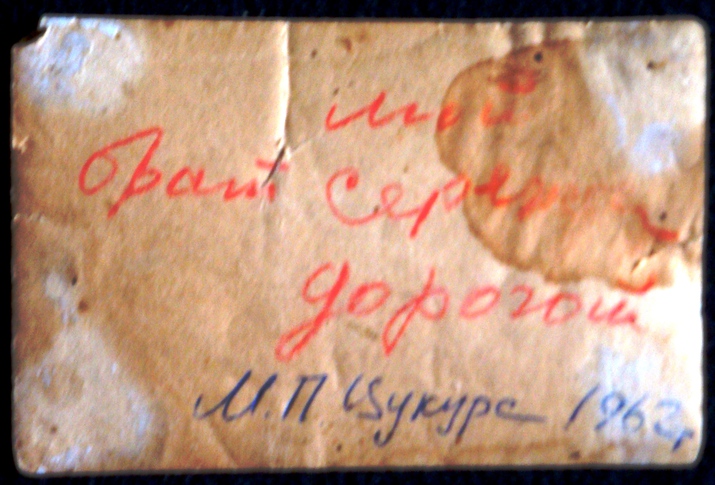 мой
брат Сережа
дорогой
М.П Цукурс 1963г